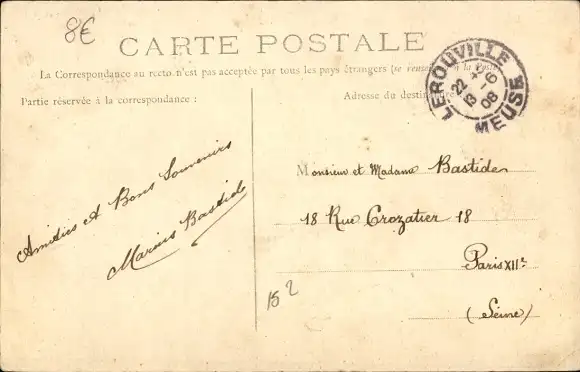 8€
CARTE POSTALE
La Correspondance au recto n'est pas acceptée par tous les pays étrangers (se rens à la Poste
Partie réservée à la correspondance :
Adresse du destin
LEROUVILLE
22 6
13
08
MEUSE
Amitiés et Bons Souvenirs
Marius Bastide
Monsieur et Madame Bastide
18 Rue Crozatier 18
Paris XIIe
(Seine)
15 2